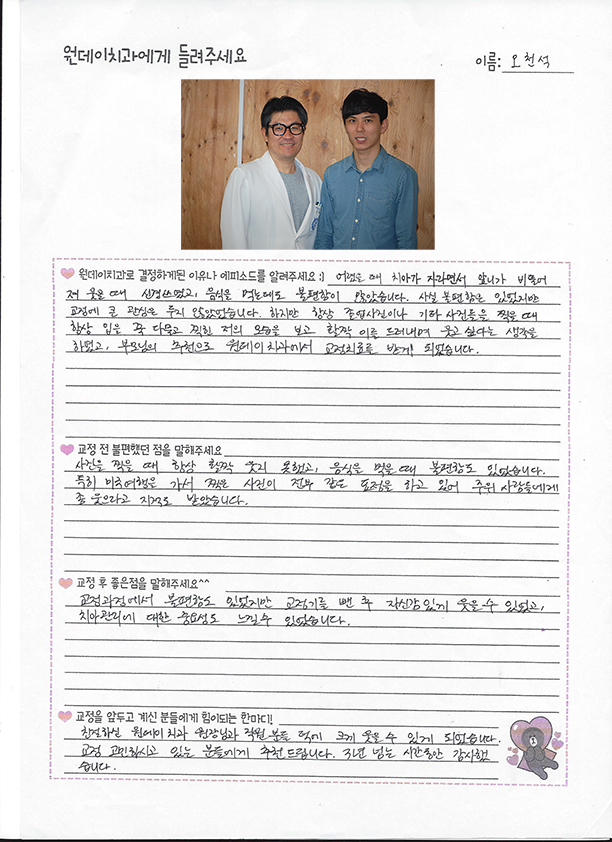 원데이치과에게 들려주세요
이름: 오천석
원데이치과로 결정하게된 이유나 에피소드를 알려주세요 :) 어렸을 때 치아가 자라면서 앞니가 비뚤어
져 웃을 때 신경쓰였고, 음식을 먹는데도 불편함이 많았습니다. 사실 불편함은 있었지만
교정에 큰 관심은 두지 않았었습니다. 하지만 항상 졸업사진이나 기타 사진들을 찍을 때
항상 입을 꾹 다물고 찍힌 저의 모습을 보고 활짝 이를 드러내며 웃고 싶다는 생각을
하였고, 부모님의 추천으로 원데이치과에서 교정치료를 받게 되었습니다.
교정 전 불편했던 점을 말해주세요
사진을 찍을 때 항상 활짝 웃지 못했고, 음식을 먹을 때 불편함도 있었습니다.
특히 미국여행을 가서 찍은 사진이 전부 같은 표정을 하고 있어 주위 사람들에게
좀 웃으라고 지적도 받았습니다.
교정 후 좋은점을 말해주세요^^
교정과정에서 불편함도 있었지만 교정기를 뺀 후 자신감있게 웃을 수 있었고,
치아관리에 대한 중요성도 느낄 수 있었습니다.
교정을 앞두고 계신 분들에게 힘이되는 한마디!
친절하신 원데이치과 원장님과 직원분들 덕에 크게 웃을 수 있게 되었습니다.
교정 고민하시고 있는 분들에게 추천드립니다. 3년 넘는 시간동안 감사했
습니다.